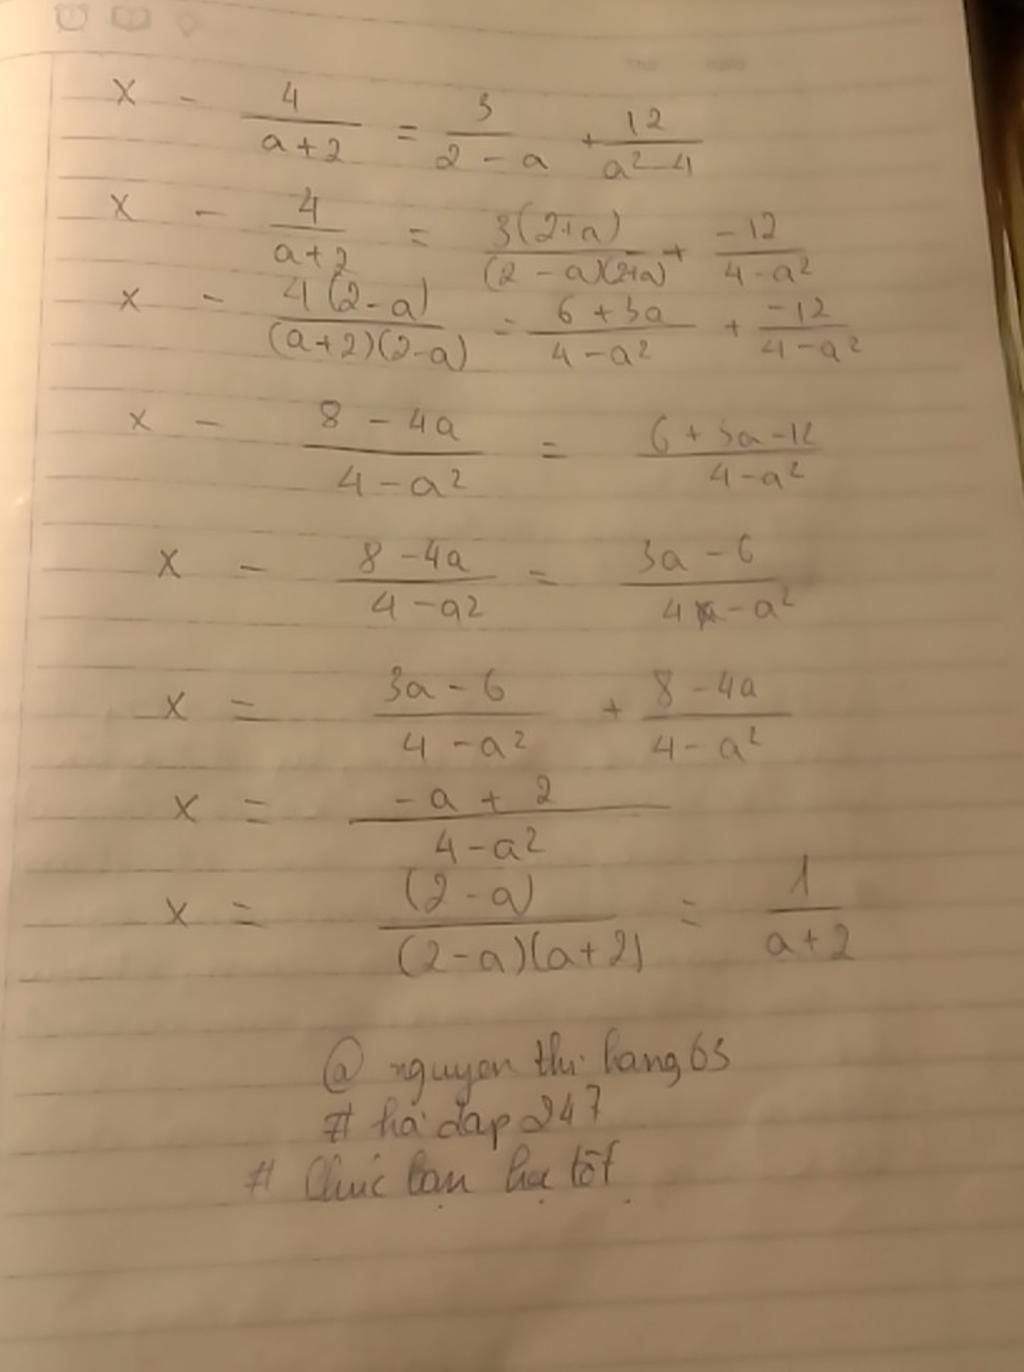 x - 4/(a+2) = 3/(2-a) + 12/(a²-4)
x - 4/(a+2) = 3(2+a)/(2-a)(2+a) + -12/(4-a²)
x - 4(2-a)/(a+2)(2-a) = (6+3a)/(4-a²) + -12/(4-a²)
x - (8-4a)/(4-a²) = (6+3a-12)/(4-a²)
x - (8-4a)/(4-a²) = (3a-6)/(4-a²)
x = (3a-6)/(4-a²) + (8-4a)/(4-a²)
x = (-a+2)/(4-a²)
x = (2-a)/(2-a)(a+2) = 1/(a+2)
@ nguyen thi hang 63
# hỏi đáp 247
# Chúc bạn học tốt